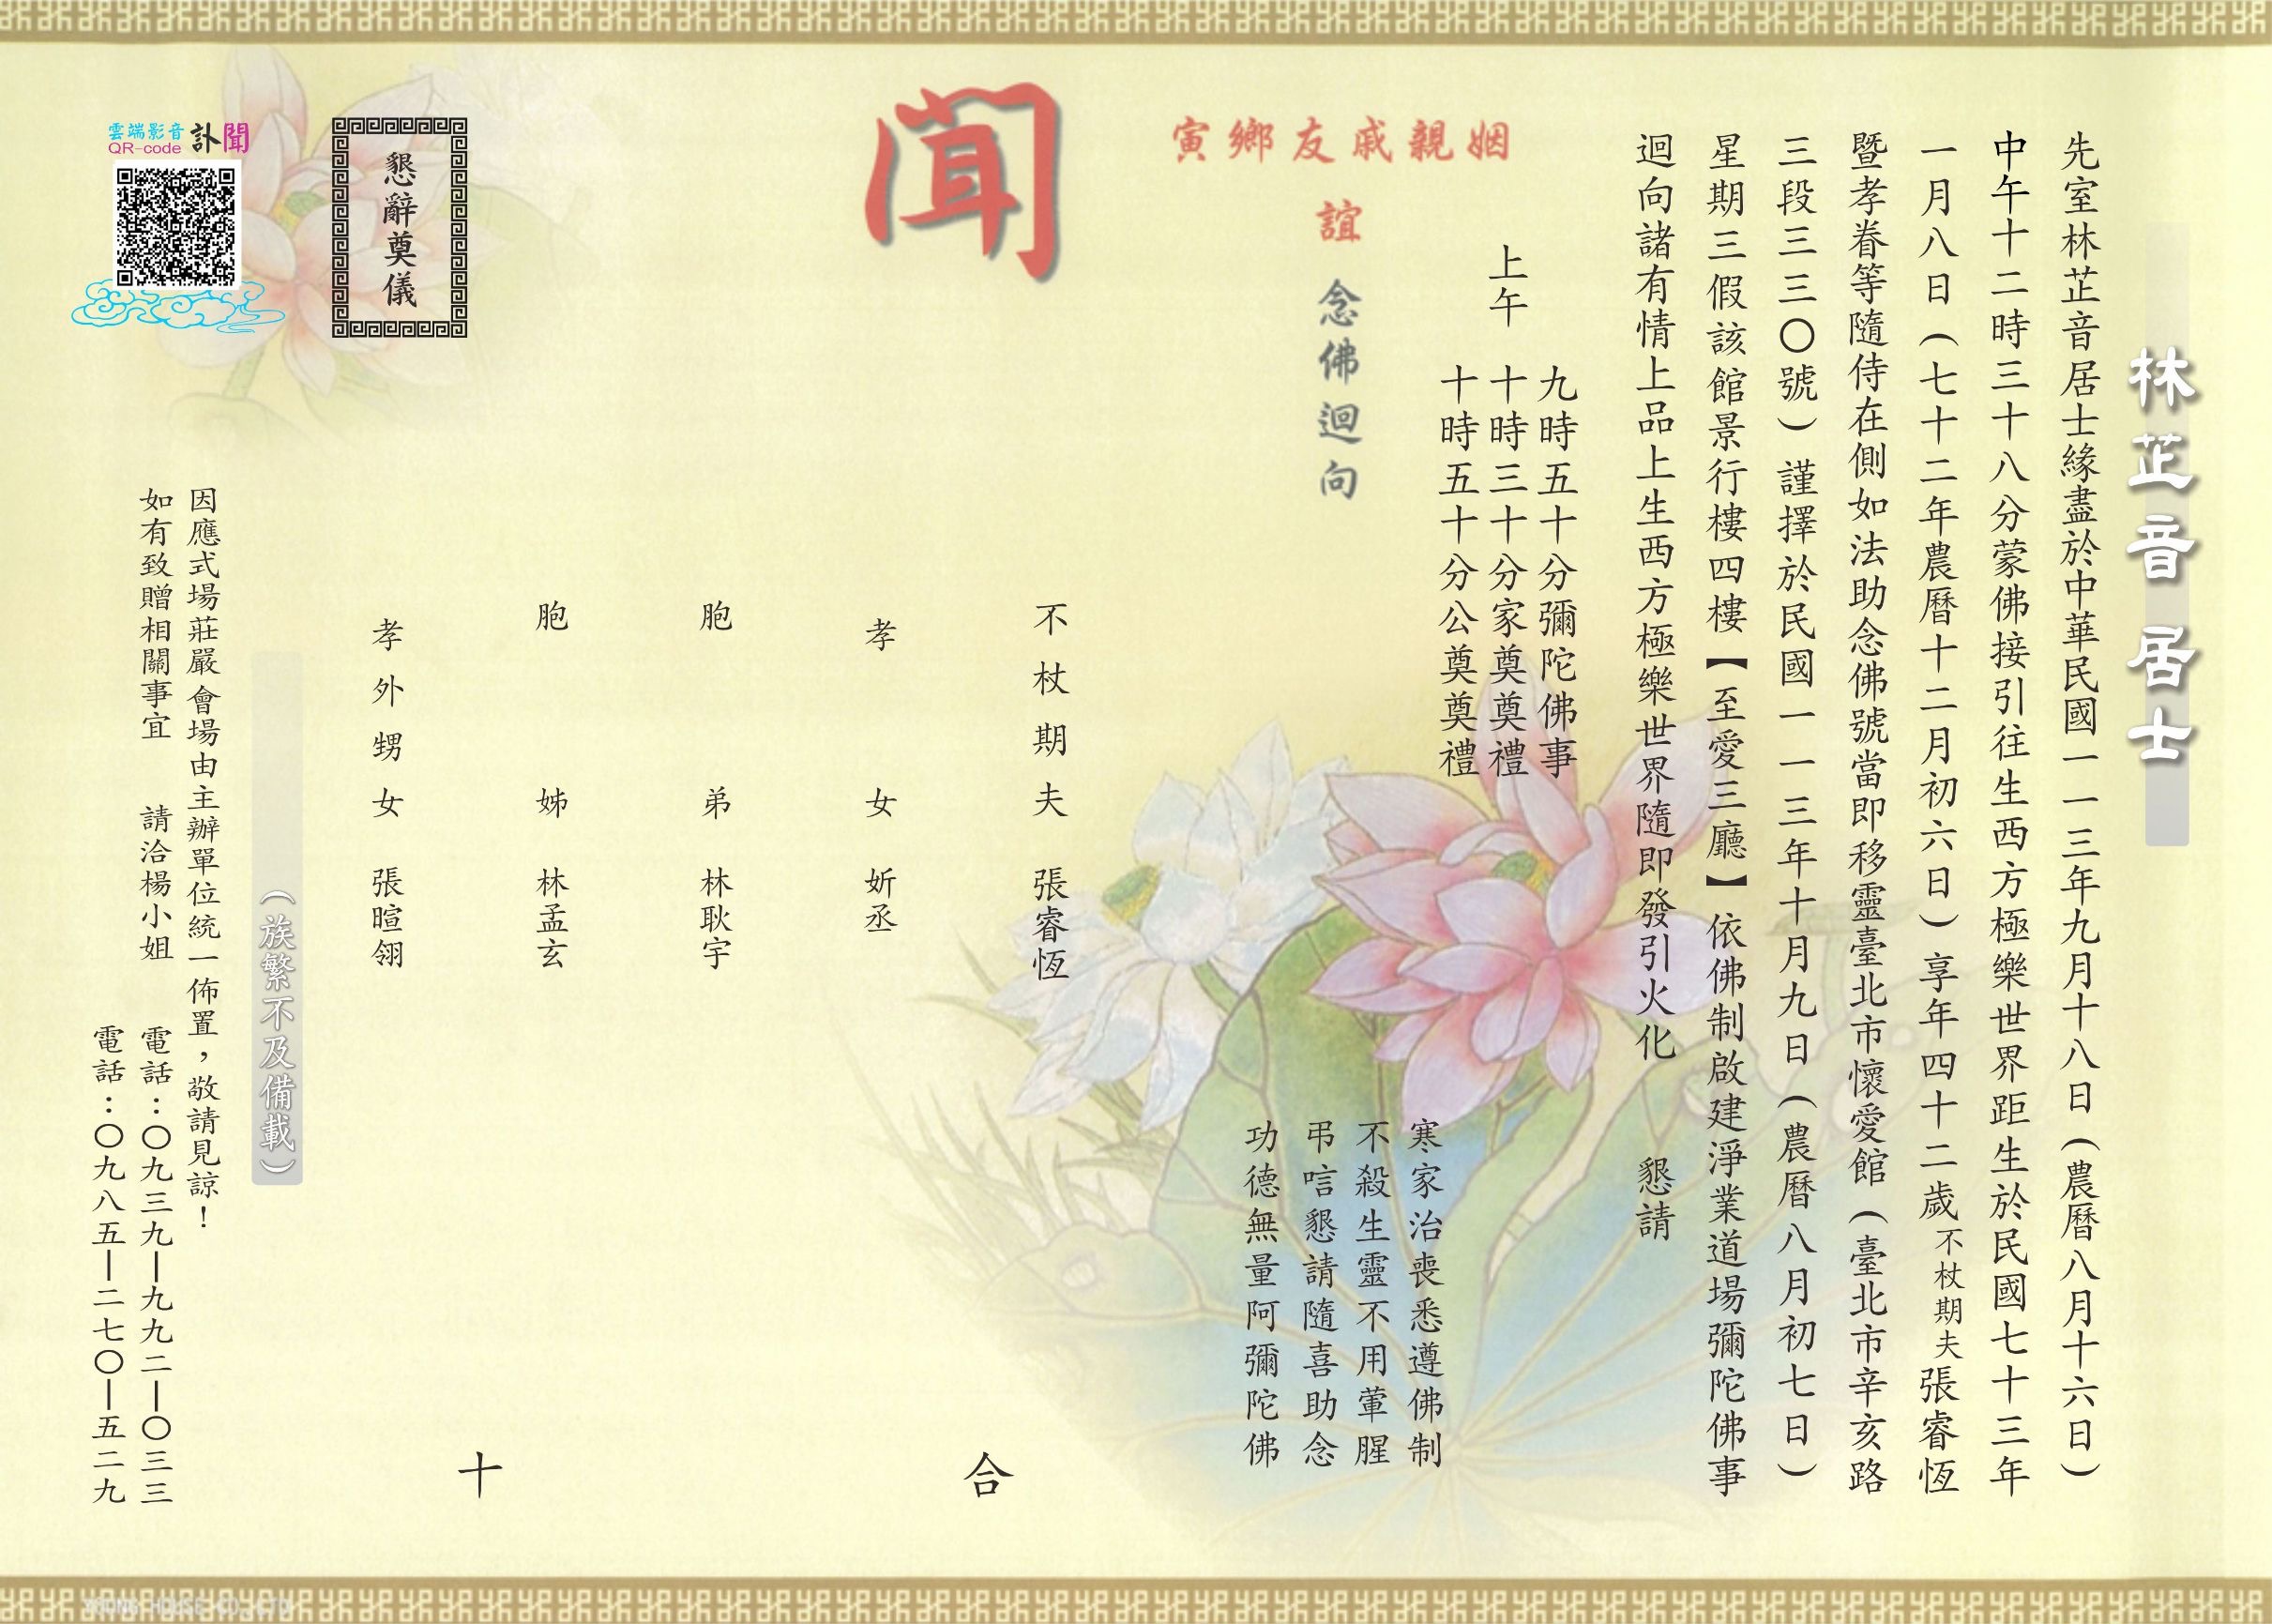 林芷音居士
先室林芷音居士緣盡於中華民國一一三年九月十八日(農曆八月十六日)
中午十二時三十八分蒙佛接引往生西方極樂世界距生於民國七十三年
一月八日(七十二年農曆十二月初六日)享年四十二歲不杖期夫張睿恆
暨孝眷等隨侍在側如法助念佛號當即移靈臺北市懷愛館(臺北市辛亥路
三段三三〇號)謹擇於民國一一三年十月九日(農曆八月初七日)
星期三假該館景行樓四樓【至愛三廳】依佛制啟建淨業道場彌陀佛事
迴向諸有情上品上生西方極樂世界隨即發引火化 懇請
九時五十分彌陀佛事
上午 十時三十分家奠奠禮
十時五十分公奠奠禮
寒家治喪悉遵佛制
不殺生靈不用葷腥
弔唁懇請隨喜助念
功德無量阿彌陀佛
姻親戚友鄉寅
誼 念佛迴向
聞
不杖期夫 張睿恆
孝女 妡丞
胞弟 林耿宇
胞姊 林孟玄
孝外甥女 張暄翎
合十
懇辭奠儀
(族繁不及備載)
因應式場莊嚴會場由主辦單位統一佈置,敬請見諒!
如有致贈相關事宜 請洽楊小姐 電話:〇九三九—九九二—〇三三
電話:〇九八五—二七〇—五二九
雲端影音
QR-code
訃聞
YOUNG HOUSE CO.,LTD